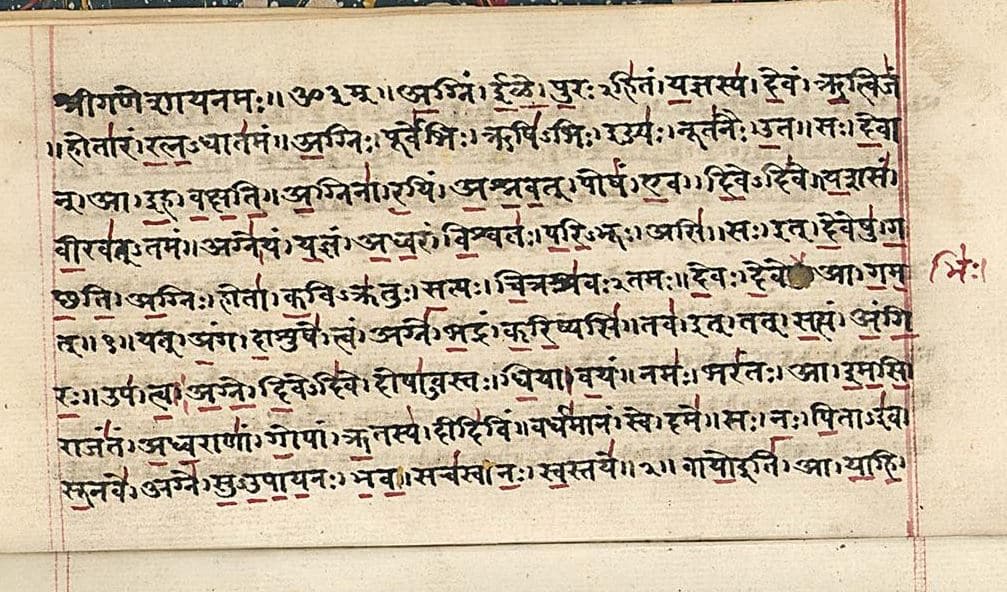 श्रीगणेशायनमः॥ॐ३म्॥अ॒ग्निं।ई॒ळे॒।पु॒रःऽहि॑तं।य॒ज्ञस्य॑।दे॒वं।ऋ॒त्विजं॑
॥होता॑रं।र॒त्न॒ऽधात॑मं॥अ॒ग्निः।पूर्वे॑भिः।ऋषि॑ऽभिः।ईड्यः॑।नूत॑नैः।उ॒त॥सः।दे॒वा
न्।आ।इ॒ह।व॒क्ष॒ति॒॥अ॒ग्निना॑।र॒यिं।अ॒श्न॒व॒त्।पोषं॑।ए॒व।दि॒वेऽदि॑वे॥य॒शसं॑
वी॒रव॑त्ऽतमं॥अग्ने॑।यं।य॒ज्ञं।अ॒ध्व॒रं।वि॒श्वतः॑।प॒रि॒ऽभूः।असि॑॥सः।इत्।दे॒वेषु॑।ग॒
च्छ॒ति॒॥अ॒ग्निः।होता॑।क॒विऽक्र॑तुः।स॒त्यः।चि॒त्रश्र॑वःऽतमः॥दे॒वः।दे॒वे आ।ग॒म॒ भिः॑।
त्॥१॥यत्।अं॒ग।दा॒शुषे॑।त्वं।अग्ने॑।भ॒द्रं।क॒रि॒ष्यसि॑॥तव॑।इत्।तत्।स॒त्यं।अं॒गि॒
रः॒॥उप॑।त्वा॒।अ॒ग्ने॒।दि॒वेऽदि॑वे।दोषा॑ऽवस्तः।धि॒या।व॒यं॥नमः॑।भरं॑तः।आ।इ॒म॒सि॒
राजं॑तं।अ॒ध्व॒राणां॑।गो॒पां।ऋ॒तस्य॑।दीदि॑विं॥वर्ध॑मानं।स्वे।दमे॑॥सः।नः॒।पि॒ताऽइ॑व।
सू॒नवे॑।अग्ने॑।सु॒ऽउ॒पा॒य॒नः।भ॒व॒॥सच॑स्व।नः॒।स्व॒स्तये॑॥२॥वायो॒इति॑।आ।या॒हि॒।